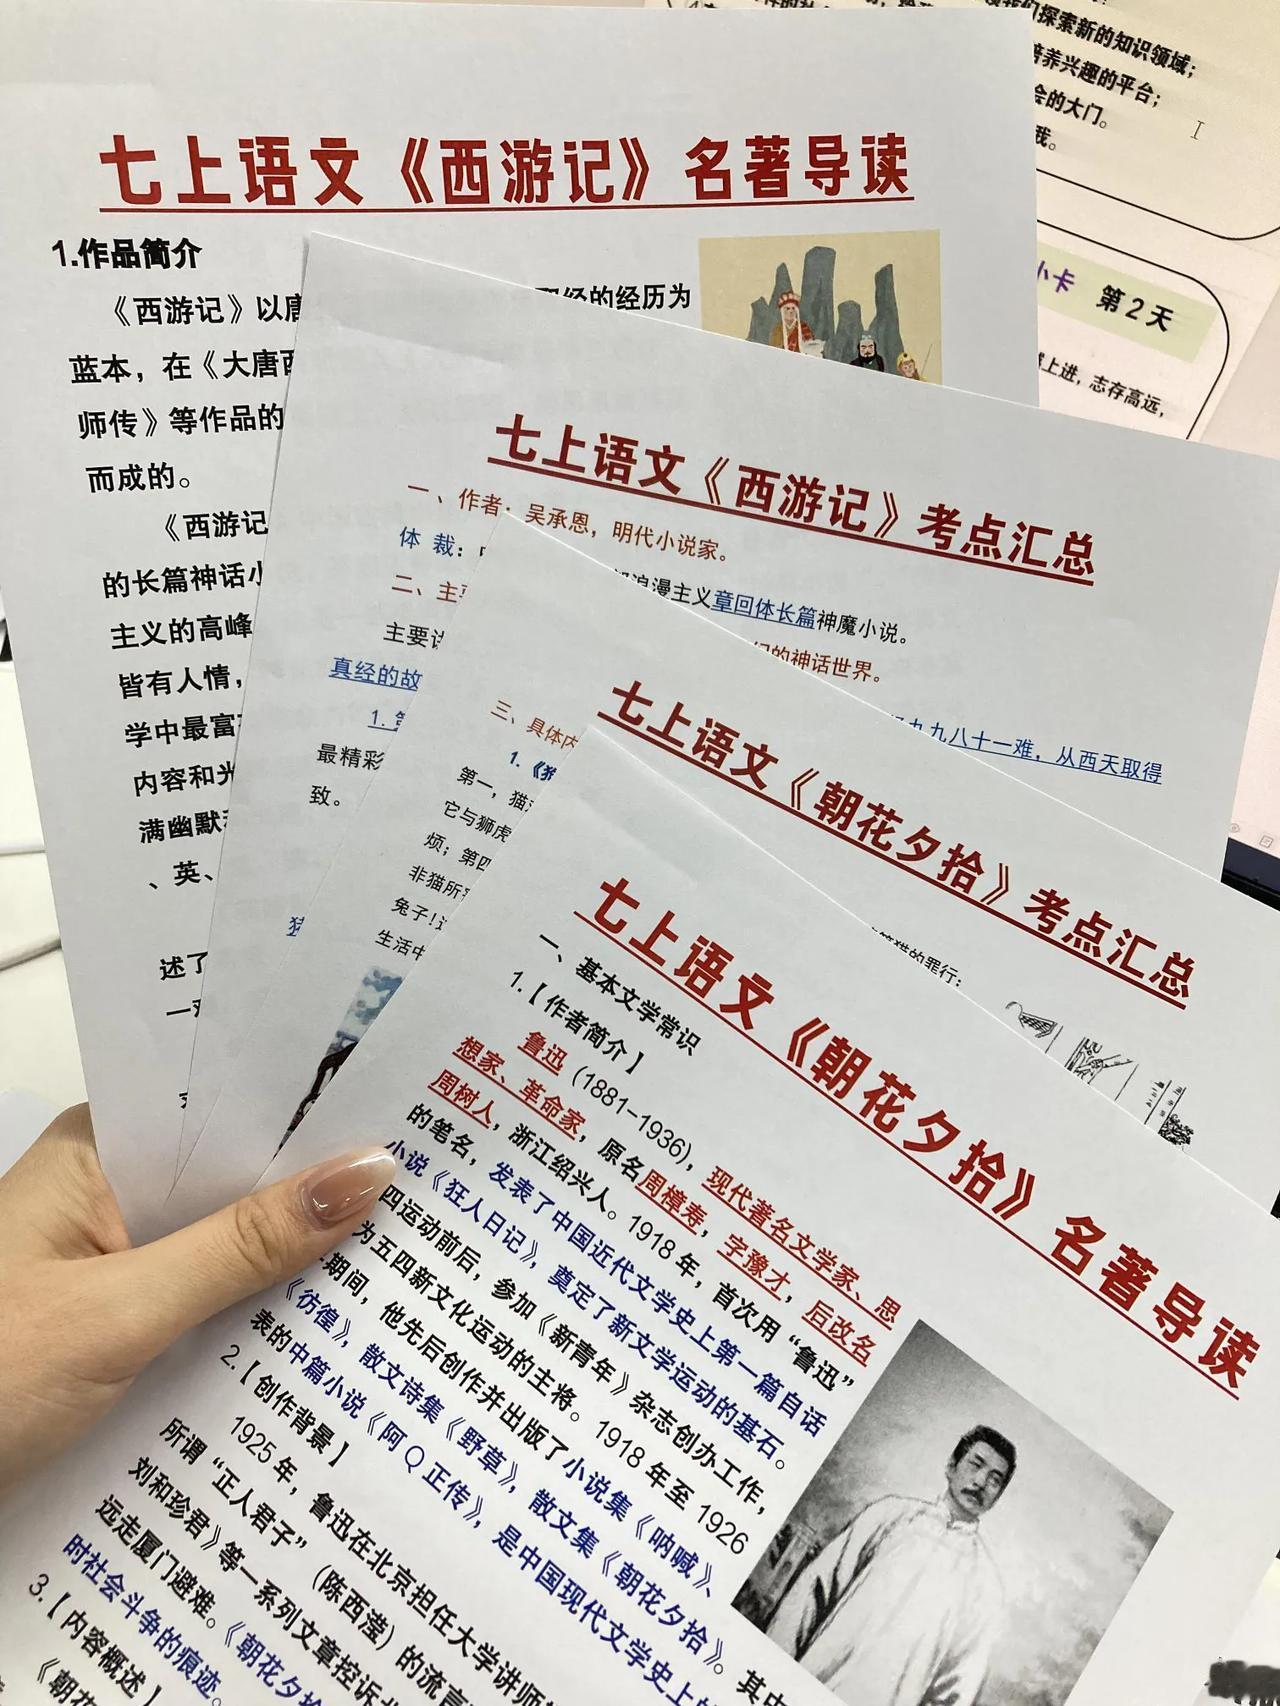 探索新的知识领域；
培养兴趣的平台；
会的大门。
我。
小卡 第2天
上进，志存高远，
七上语文《西游记》名著导读
1.作品简介
《西游记》以唐
经的经历为
蓝本，在《大唐西
师传》等作品的
而成的。
《西游记
的长篇神话小
主义的高峰
皆有人情，
学中最富
内容和光
满幽默
、英、
述了
一
七上语文《西游记》考点汇总
一、作者：吴承恩，明代小说家。
体 裁：
浪漫主义章回体长篇神魔小说。
二、主
的神话世界。
主要讲
九九八十一难，从西天取得
真经的故
1.
最精彩
致。
猪
七上语文《朝花夕拾》考点汇总
三、具体内
1.《狗
第一，猫
猫的罪行：
它与狮虎
烦；第四
非猫所
兔子！
生活中
七上语文《朝花夕拾》名著导读
一、基本文学常识
1.【作者简介】
鲁迅（1881-1936），现代著名文学家、思
想家、革命家，原名周樟寿，字豫才，后改名
周树人，浙江绍兴人。1918年，首次用“鲁迅”
的笔名，发表了中国近代文学史上第一篇白话
小说《狂人日记》，奠定了新文学运动的基石。
四运动前后，参加《新青年》杂志创办工作，
为五四新文化运动的主将。1918年至1926
期间，他先后创作并出版了小说集《呐喊》、
《彷徨》，散文诗集《野草》，散文集《朝花夕拾》。其中
表的中篇小说《阿Q正传》，是中国现代文学史上的
2.【创作背景】
1925年，鲁迅在北京担任大学讲师
所谓“正人君子”（陈西滢）的流言
刘和珍君》等一系列文章控诉北
远走厦门避难。《朝花夕
时社会斗争的痕迹。
3.【内容概述】
《朝花夕拾